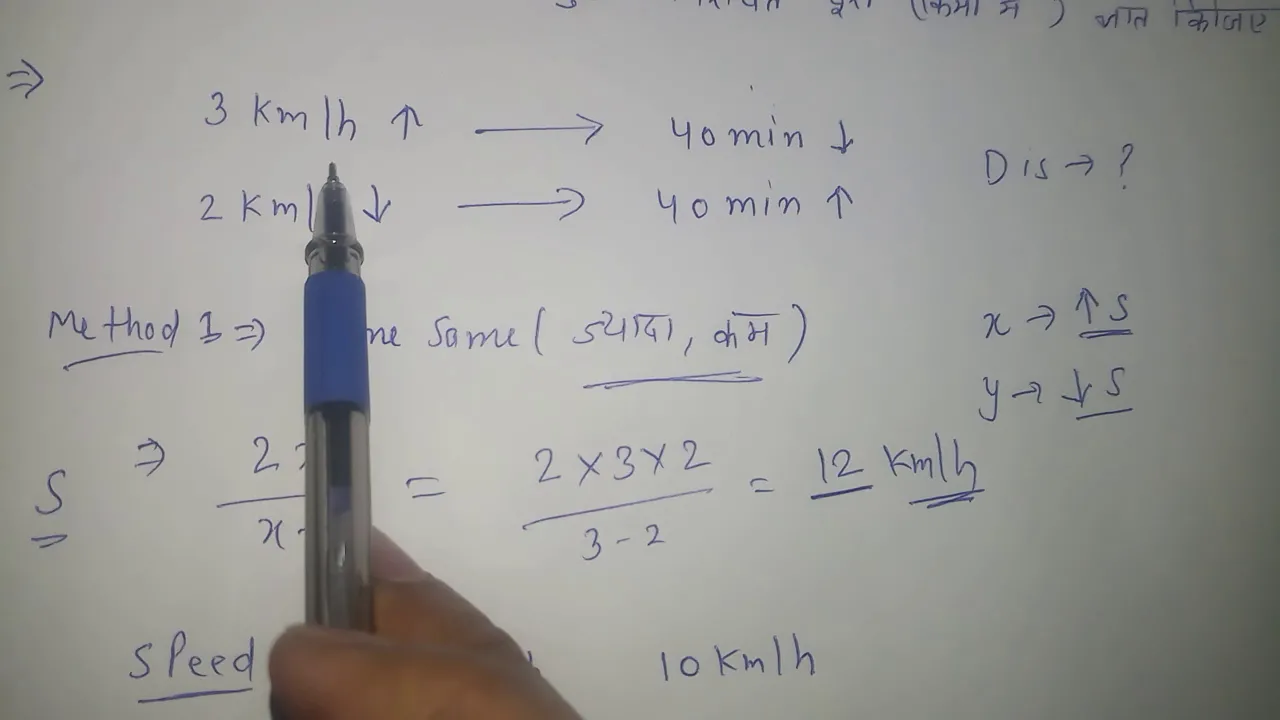 (किमी में) ज्ञात किजिए
⇒
3 Km/h ↑ ⟶ 40 min ↓
2 Km/ ↓ ⟶ 40 min ↑
Dis → ?
Method 1 ⇒ me same ( ज्यादा, कम )
x → ↑ S
y → ↓ S
S ⇒ 2 / x- = 2×3×2 / 3-2 = 12 Km/h
Speed 10 Km/h